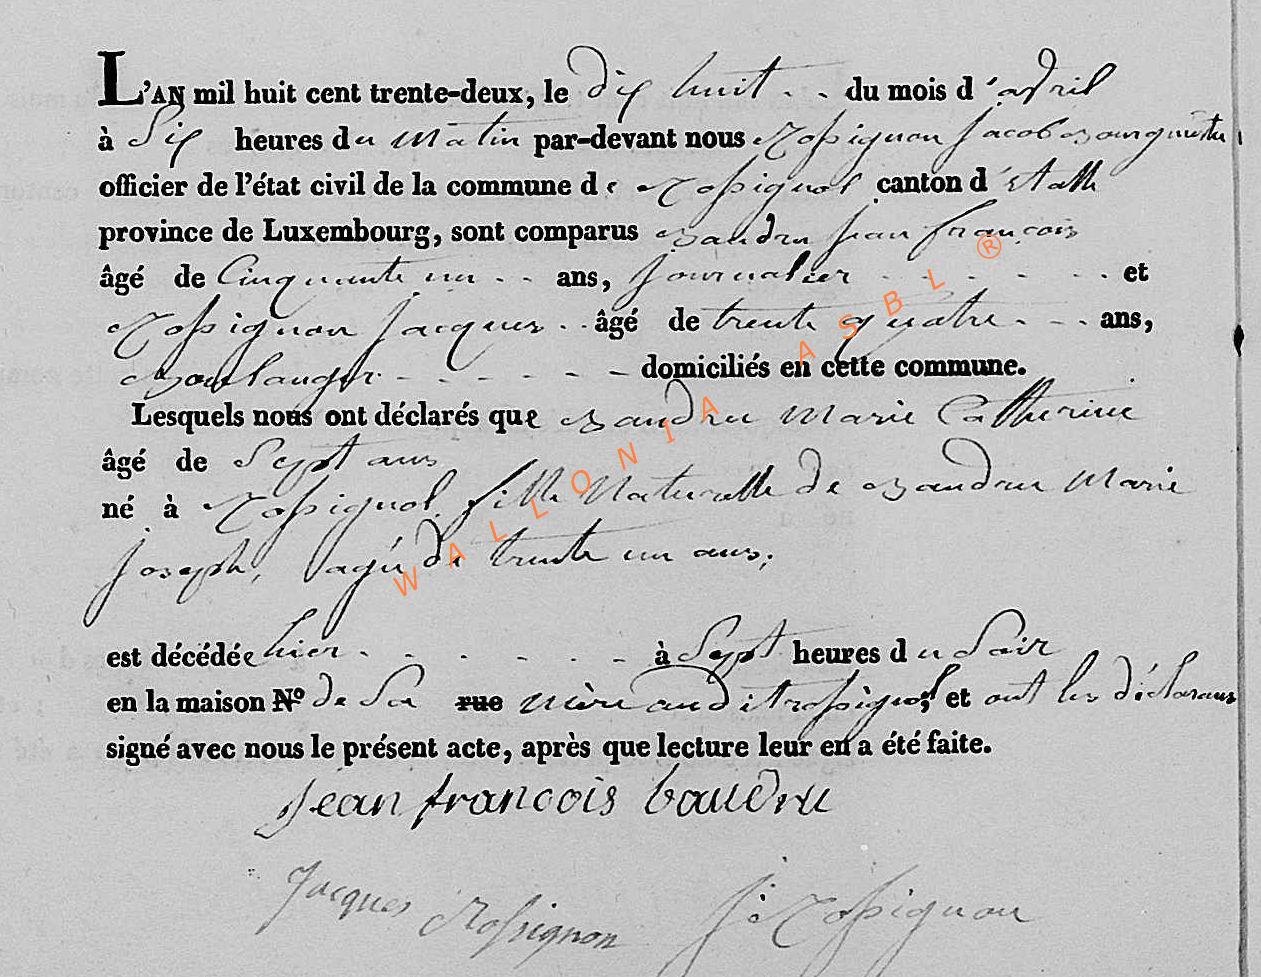 L'AN mil huit cent trente-deux, le dix huit . . du mois d'avril
à Six heures du Matin par-devant nous Rossignon Jacob Bourguimtre
officier de l'état civil de la commune de Rossignol canton d'Etalle
province de Luxembourg, sont comparus Baudru jean françois
âgé de Cinquante un . . ans, journalier . . . . . . et
Rossignon Jacques . . âgé de trente quatre . . . ans,
Boulanger . . . . . . domiciliés en cette commune.
Lesquels nous ont déclarés que Baudru Marie Catherine
âgé de Sept ans
né à Rossignol, fille Naturelle de Baudru Marie
joseph, agée de trente un ans;
est décédée hier . . . . . . à Sept heures du Soir
en la maison N° de Sa rue mère audit rossignol; et ont les déclarans
signé avec nous le présent acte, après que lecture leur en a été faite.
jean francois baudru
Jacques Rossignon J: Rossignon
WALLONIA ASBL ®